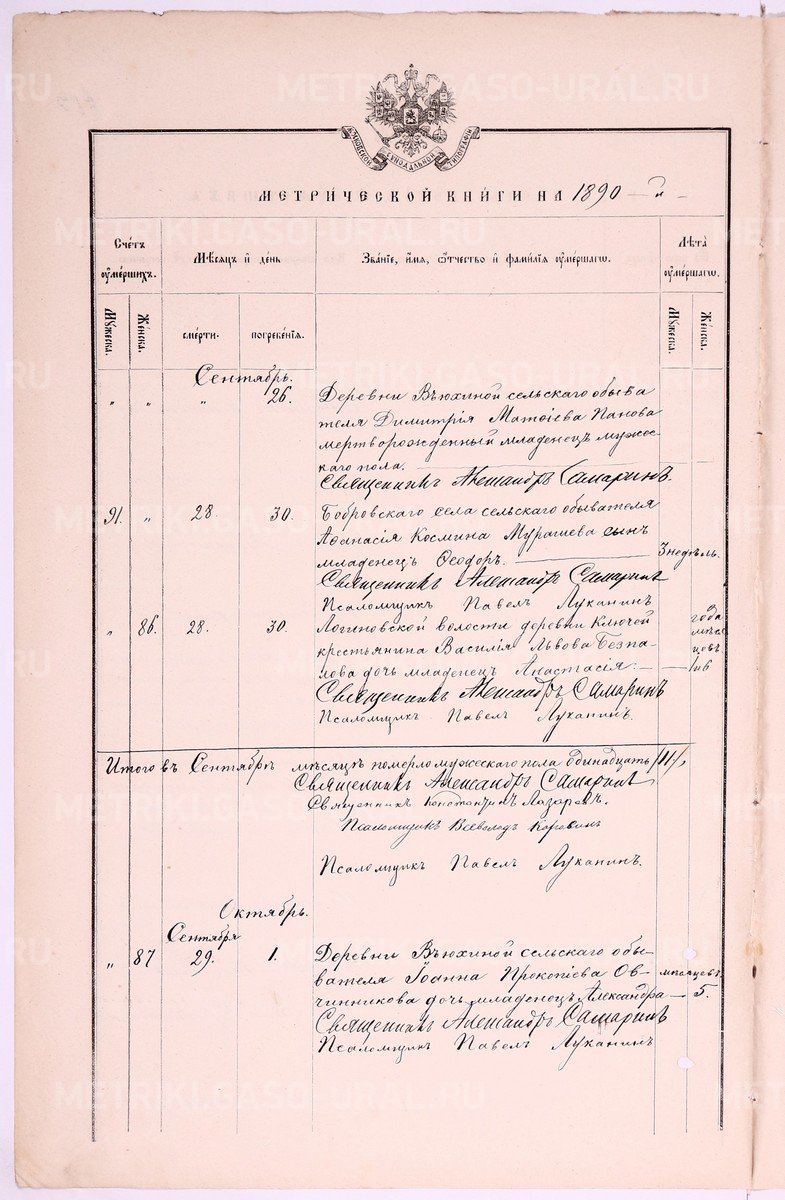 МОСКОВСКОЙ СѴНОДАЛЬНОЙ ТИПОГРАФІИ
МЕТРИ́ЧЕСКОЙ КНИ́ГИ НА 1890 - й -
Сче́тъ ᲂумéршихъ.
Мѣ́сяцъ и҆ де́нь
Зва́нїе, и҆́мя, ѻ҆́тчество и҆ фами́лїя ᲂуме́ршагѡ.
Лѣ́та ᲂуме́ршагѡ.
Мꙋ́жеска.
Же́нска.
сме́рти.
погребе́нїя.
Мꙋ́жеска.
Же́нска.
Сентябрь.
" " " 26. Деревни Вьюхиной сельскаго обыва
теля Димитрія Матѳіева Панова
мертворожденный младенецъ мужес-
каго пола.
Священникъ Александръ Самаринъ.
91. " 28. 30. Бобровскаго села сельскаго обывателя
Аѳанасія Космина Мурашева сынъ
младенецъ Ѳеодоръ. 3 недѣль.
Священникъ Александръ Самаринъ
Псаломщикъ Павелъ Луканинъ
" 86. 28. 30. Логиновской волости деревни Ключей
крестьянина Василія Львова Безпа
лова дочь младенецъ Анастасія.
года
мѣся
цовъ
Священникъ Александръ Самаринъ
Псаломщикъ Павелъ Луканинъ.
Итого въ Сентябрѣ мѣсяцѣ померло мужескаго пола одинадцать /11/,
Священникъ Александръ Самаринъ
Священникъ Константинъ Лазаревъ.
Псаломщикъ Всеволодъ Коровинъ
Псаломщикъ Павелъ Луканинъ.
Октябрь.
Сентября
" 87 29. 1. Деревни Вьюхиной сельскаго обы-
вателя Іоанна Прокопіева Ов- мѣсяцевъ
чинникова дочь младенецъ Александра — 5.
Священникъ Александръ Самаринъ
Псаломщикъ Павелъ Луканинъ
METRIKI.GASO-URAL.RU